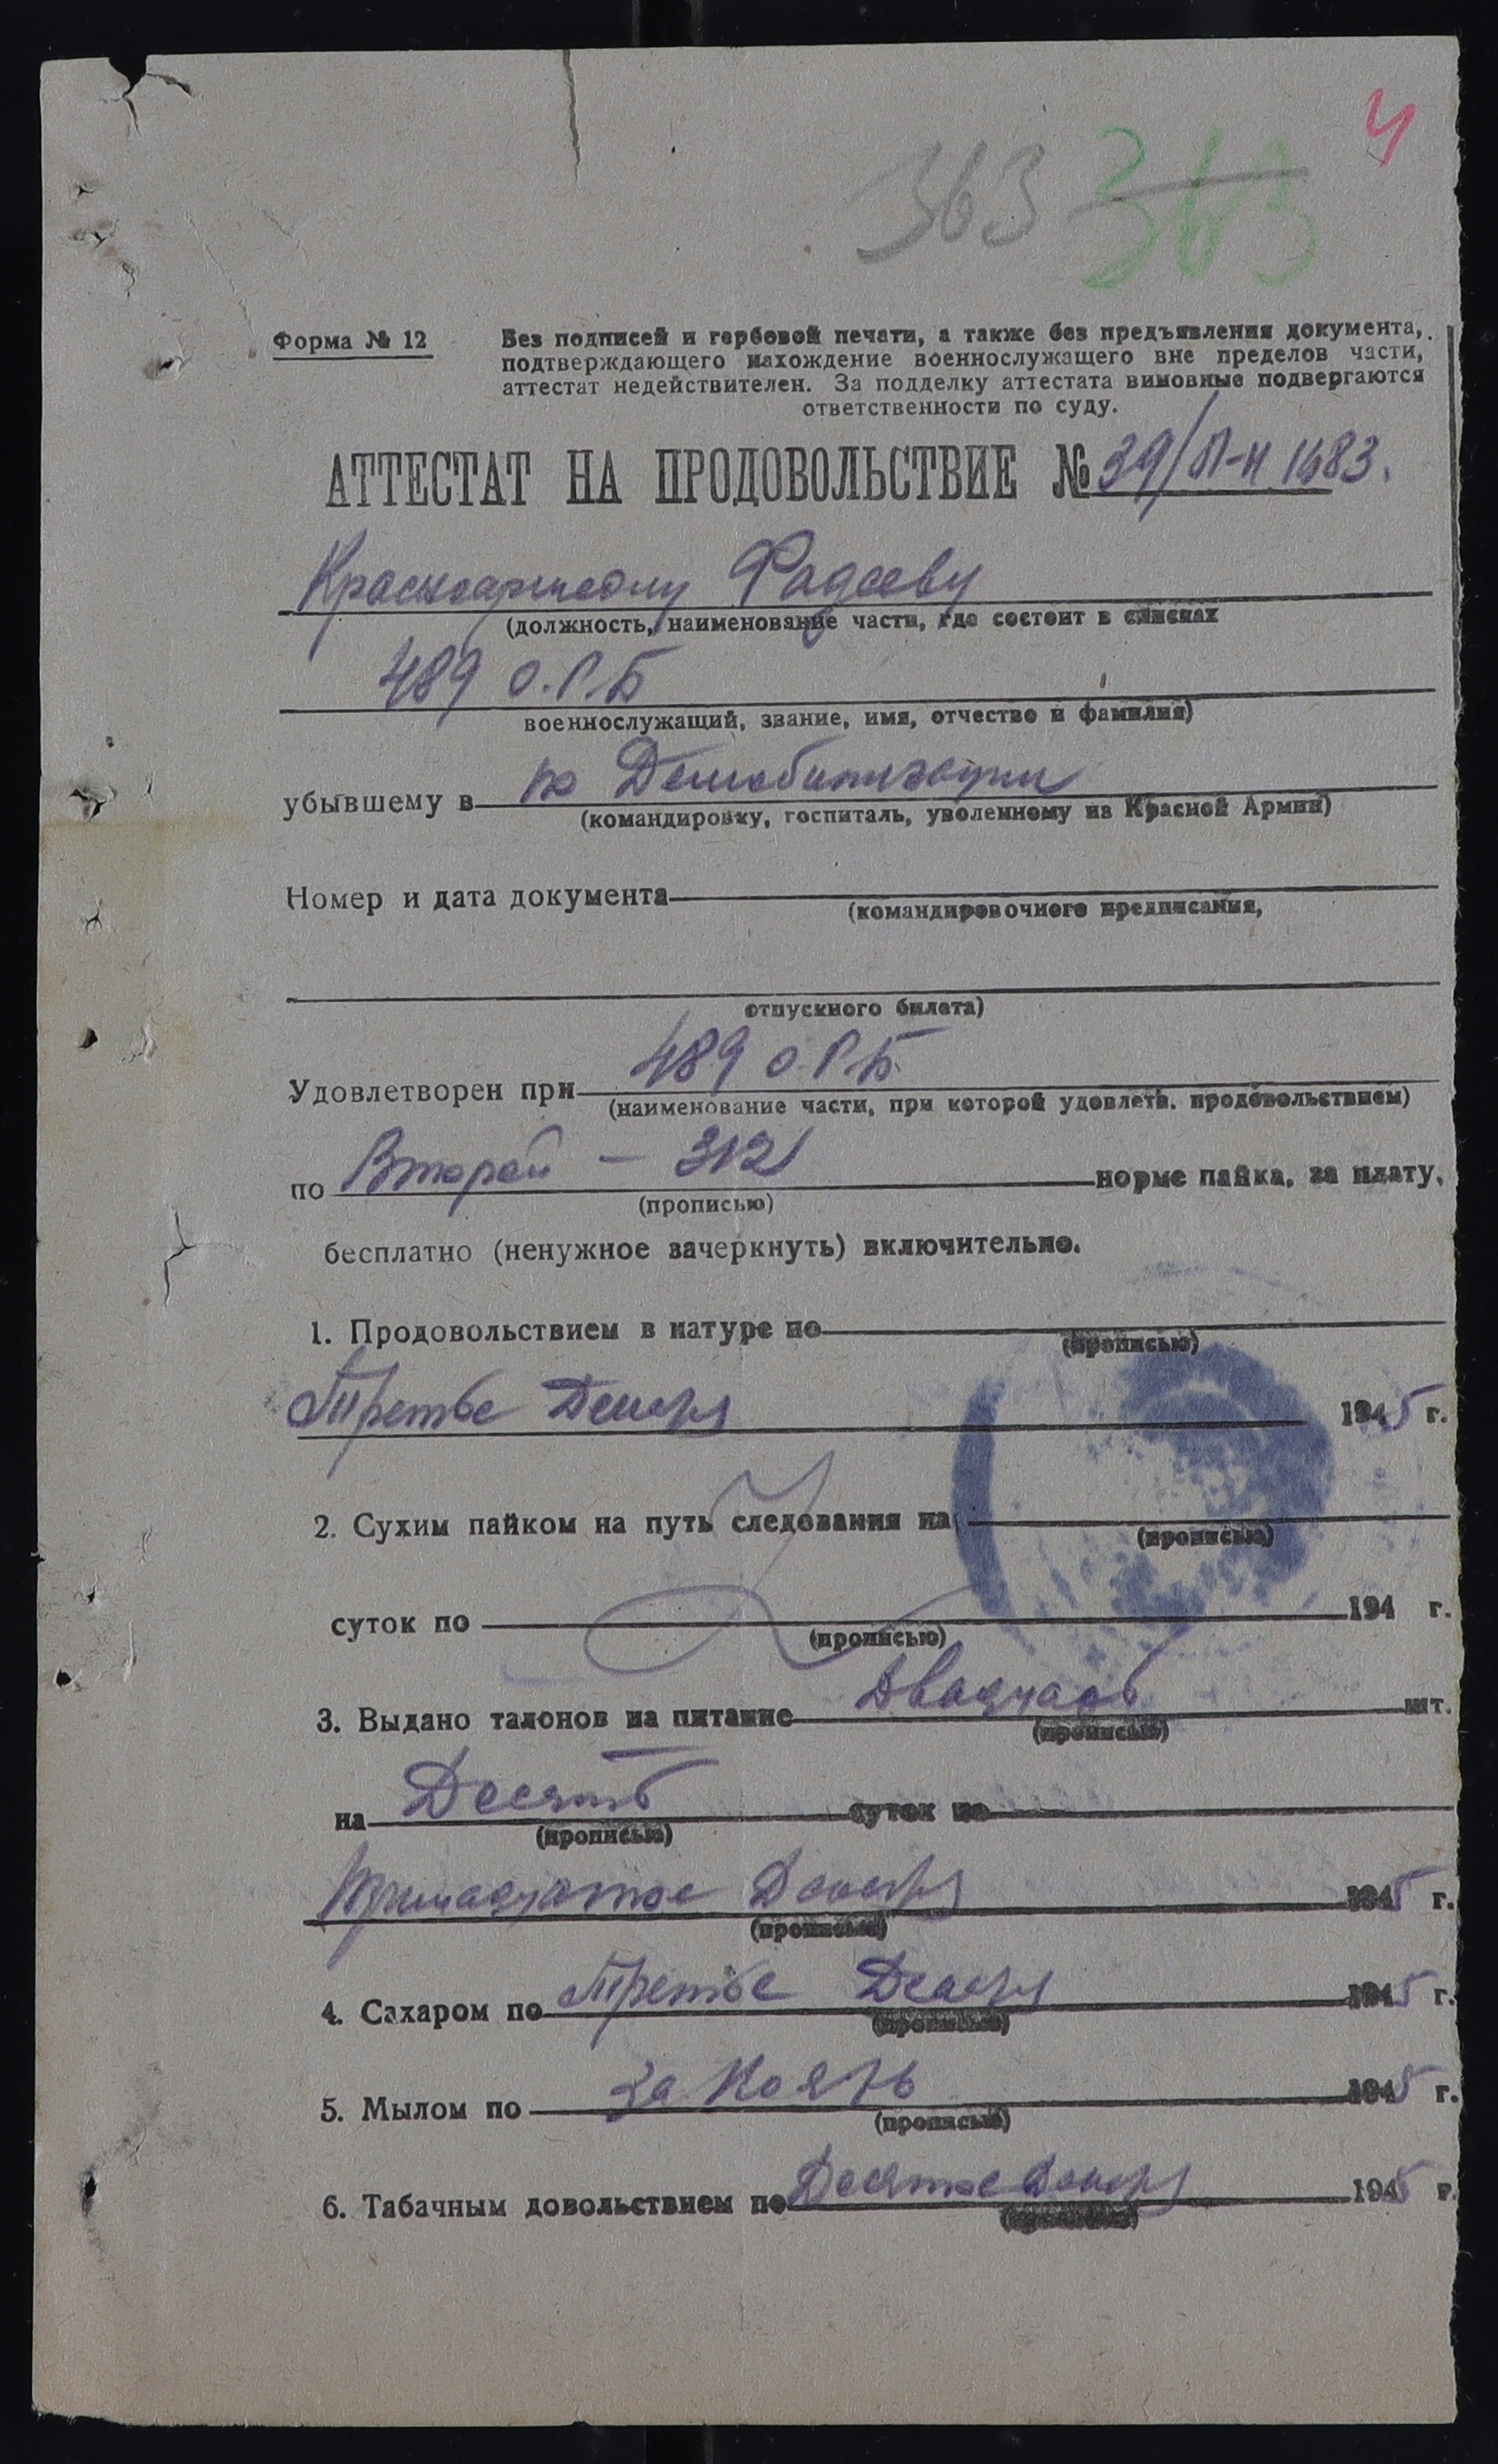 4
363 363
Форма № 12
Без подписей и гербовой печати, а также без предъявления документа,
подтверждающего нахождение военнослужащего вне пределов части,
аттестат недействителен. За подделку аттестата виновные подвергаются
ответственности по суду.
АТТЕСТАТ НА ПРОДОВОЛЬСТВИЕ № 39/П-Н 1683.
Красноармейцу Фадееву
(должность, наименование части, где состоит в списках
489 О.Р.Б
военнослужащий, звание, имя, отчество и фамилия)
убывшему в по Демобилизации
(командировку, госпиталь, уволенному из Красной Армии)
Номер и дата документа
(командировочного предписания,
отпускного билета)
489 О.Р.Б.
Удовлетворен при
(наименование части, при которой удовлетв. продовольствием)
по Второй - 312 норме пайка, за плату,
(прописью)
бесплатно (ненужное зачеркнуть) включительно.
1. Продовольствием в натуре по
(прописью)
Третье Декабря 1945 г.
2. Сухим пайком на путь следования на
(прописью)
суток по 194 г.
(прописью)
3. Выдано талонов на питание Двадцать шт.
(прописью)
на Десять суток по
(прописью)
Тринадцатое Декабря 1945 г.
(прописью)
4. Сахаром по Третье Декабря 1945 г.
(прописью)
5. Мылом по за Ноябрь 1945 г.
(прописью)
6. Табачным довольствием по Десятое Декабря 1945 г.
(прописью)